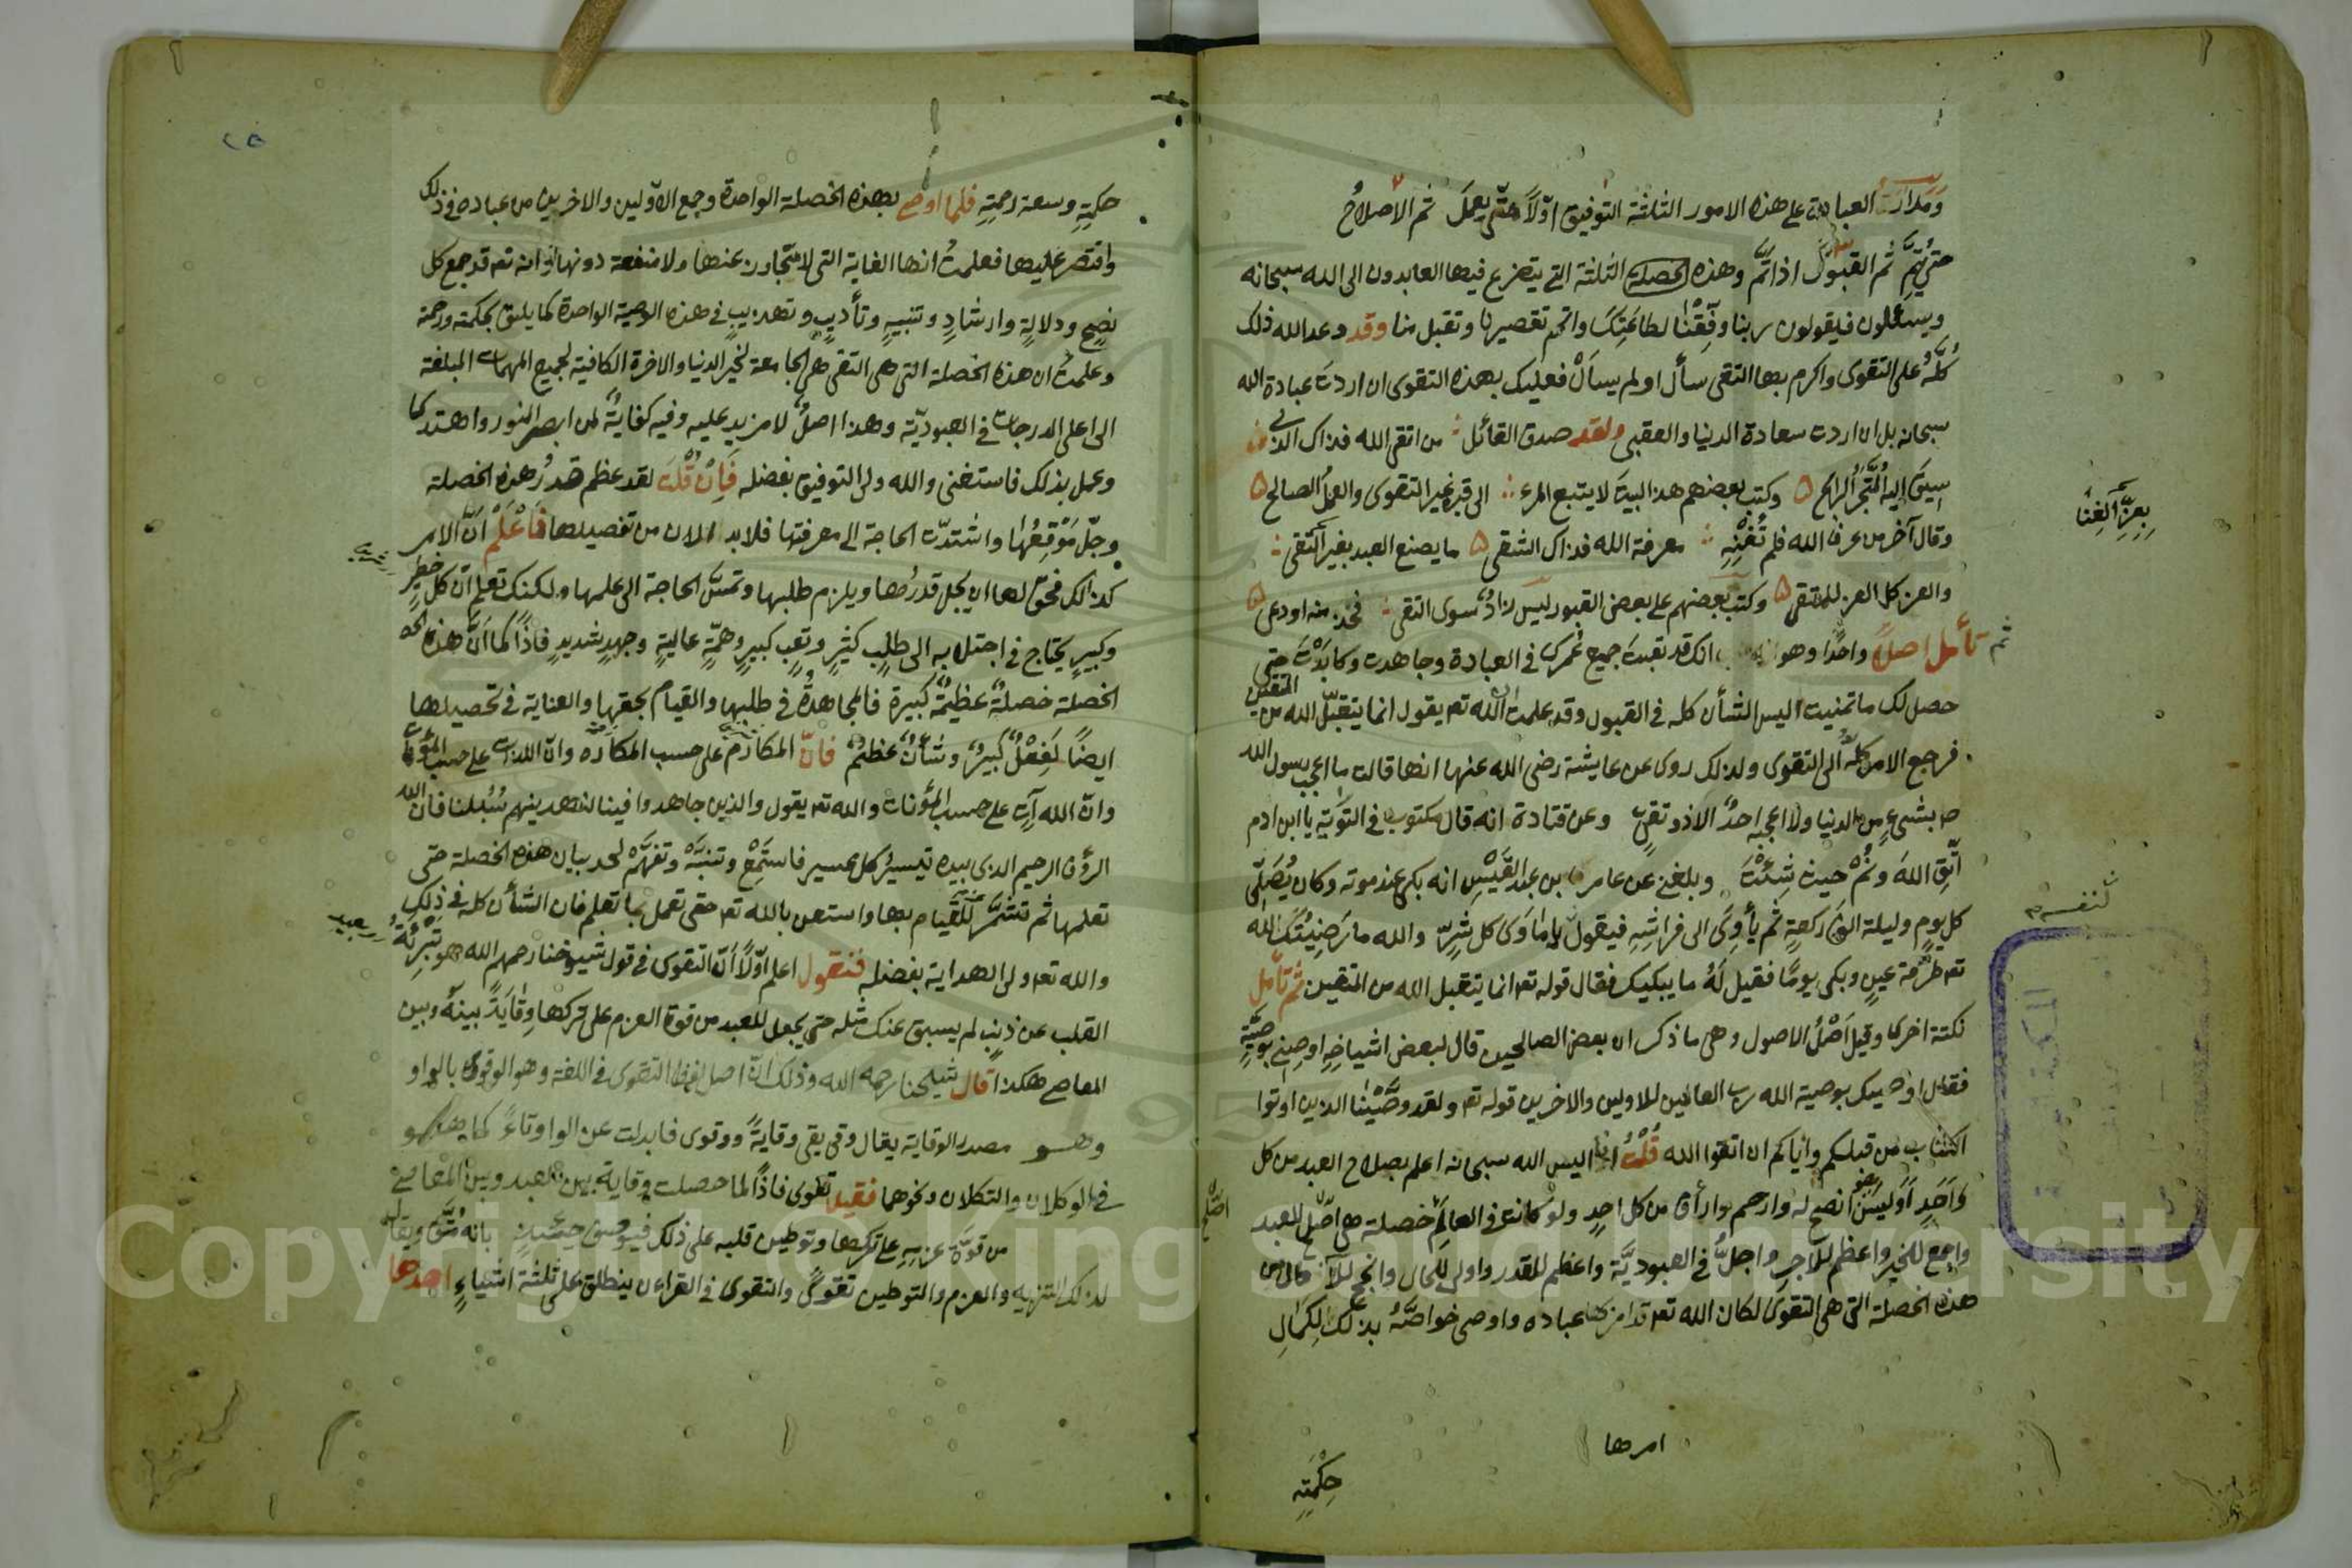 ومدار العبادة على هذه الامور الثلثة التوفيق اوّلاً حتّى يعمل ثم الاصلاحُ
حتى يتمّ ثم القبول اذا تمّ وهذه الخصلة الثلثة التى يتضرع فيها العابدون الى الله سبحانه
ويسئلون فيقولون ربنا وفّقنا لطاعتك واتمم تقصيرنا وتقبل منا وقد وعد الله ذلك
كلّه على التقوى واكرم بها التقى سأل او لم يسأل فعليك بهذه التقوى ان اردت عبادة الله
سبحانه بل ان اردت سعادة الدنيا والعقبى ولقد صدق القائل من اتقى الله فذاك الذى
سيق اليه المتجر الرابح ٥ وكتب بعضهم هذ البيت لا يتبع المرء الى قبره غير التقوى والعمل الصالح ٥
وقال آخر من عرف الله فلم تغنه معرفة الله فذاك الشقى ٥ ما يصنع العبد بغير التقى
بعزّ الغنا
والعز كل العز للمتقى ٥ وكتب بعضهم على بعض القبور ليس زادٌ سوى التقى فخذ منه او دعى ٥
ثم تأمل اصلاً واحدًا وهو انك قد تعبت جميع عمرك فى العبادة وجاهدت وكابدت حتى
حصل لك ما تمنيت اليس الشأن كله فى القبول وقد علمت ان الله تعـ يقول انما يتقبل الله من المتقين
فرجع الامر كلّه الى التقوى ولذلك روى عن عايشة رضى الله عنها انها قالت ما اعجب رسول الله
صـ بشىءٍ من الدنيا ولا اعجبه احدٌ الا ذو تقى وعن قتادة انه قال مكتوب فى التورية يا ابن ادم
اتّق الله ونم حيث شئت وبلغنى عن عامر بن عبد القيس انه بكى عند موته وكان يُصلّى
كل يوم وليلة الف ركعة ثم يأوى الى فراشه فيقول يا مأوى كل شرّ والله ما رضيتك لله
لنفسى
تعـ طرفة عين وبكى يومًا فقيل له ما يبكيك فقال قوله تعـ انما يتقبل الله من المتقين ثم تأمل
نكتة اخرى وقيل اصل الاصول وهى ما ذكر ان بعض الصالحين قال لبعض اشياخه اوصنى بوصية
فقال اوصيك بوصية الله رب العالمين للاولين والاخرين قوله تعـ ولقد وصّينا الذين اوتوا
الكتاب من قبلكم واياكم ان اتقوا الله قلت انا اليس الله سبحانه اعلم بصلاح العبد من كل
واحد اوليس هو انصح له وارحم وارأف من كل احد ولو كانت فى العالم خصلة هى اصلح للعبد
اصلح
واجمع للخير واعظم للاجر واجلّ فى العبودية واعظم للقدر واولى للحال وانجح للآمال من
هذه الخصلة التى هى التقوى لكان الله تعـ قد امر بها عباده واوصى خواصّه بذلك لكمال
امرها
حكمته
٢٥
حكمته وسعة رحمته فلما اوصى بهذه الخصلة الواحدة وجمع الاوّلين والاخرين من عباده فى ذلك
واقتصر عليها فعلمت انها الغاية التى لا متجاوز عنها ولا منفعة دونها وانه تعـ قد جمع كل
نصح ودلالة وارشاد وتنبيه وتأديب وتهذيب فى هذه الوصية الواحدة كما يليق بحكمته ورحمته
وعلمت ان هذه الخصلة التى هى التقى هى الجامعة لخير الدنيا والاخرة الكافية لجميع المهمات المبلغة
الى اعلى الدرجات فى العبوديّة وهذا اصلٌ لا مزيد عليه وفيه كفايةٌ لمن ابصر النور واهتدى
وعمل بذلك فاستغنى والله ولى التوفيق بفضله فان قلت لقد عظم قدر هذه الخصلة
وجلّ موقعها واشتدّت الحاجة الى معرفتها فلا بد الان من تفصيلها فاعلم انّ الامر
كذلك فحق لها ان يجل قدرها ويلزم طلبها وتمسّ الحاجة الى علمها ولكنك تعلم ان كل خطر
وكبير يحتاج فى اجتلابه الى طلب كثير وتعب كبير وهمّة عالية وجهد شديد فاذًا كما انّ هذه
الخصلة خصلةٌ عظيمةٌ كبيرة فالمجاهدة فى طلبها والقيام بحقها والعناية فى تحصيلها
ايضًا لفعلٌ كبيرٌ وشأنٌ عظيمٌ فانّ المكارم على حسب المكاره وانّ اللذات على حسب المؤنات
وانّ الله آت على حسب المؤنات والله تعـ يقول والذين جاهدوا فينا لنهدينهم سُبلنا فان الله
الرؤف الرحيم الذى بيده تيسير كل عسير فاستمع وتنبّه وتفهّم لحد بيان هذه الخصلة حتى
تعلمها ثم تشمّر للقيام بها واستعن بالله تعـ حتى تعمل بما تعلم فان الشأن كله فى ذلك
والله تعـ ولى الهداية بفضله فنقول اعلم اوّلاً انّ التقوى فى قول شيوخنا رحمهم الله هو تبرئة
القلب عن ذنب لم يسبق عنك مثله حتى يجعل للعبد من قوة العزم على تركها وقايةً بينه وبين
المعاصى هكذا قال شيخنا رحمه الله وذلك انّ اصل لفظ التقوى فى اللغة وهو الوقوى بالواو
وهو مصدر الوقاية يقال وقى يقى وقايةً ووقوى فابدلت عن الواو تاءً كما هو
فى الوكلان والتكلان ونحوهما فقيل تقوى فاذًا لما حصلت وقاية بين العبد وبين المعاصى
من قوّة عزمه على تركها وتوطين قلبه على ذلك فيوصف حينئذ بانه مُتّق ويقال
لذلك التنزيه والعزم والتوطين تقوىً والتقوى فى القراءن ينطلق على ثلثة اشياء احدها